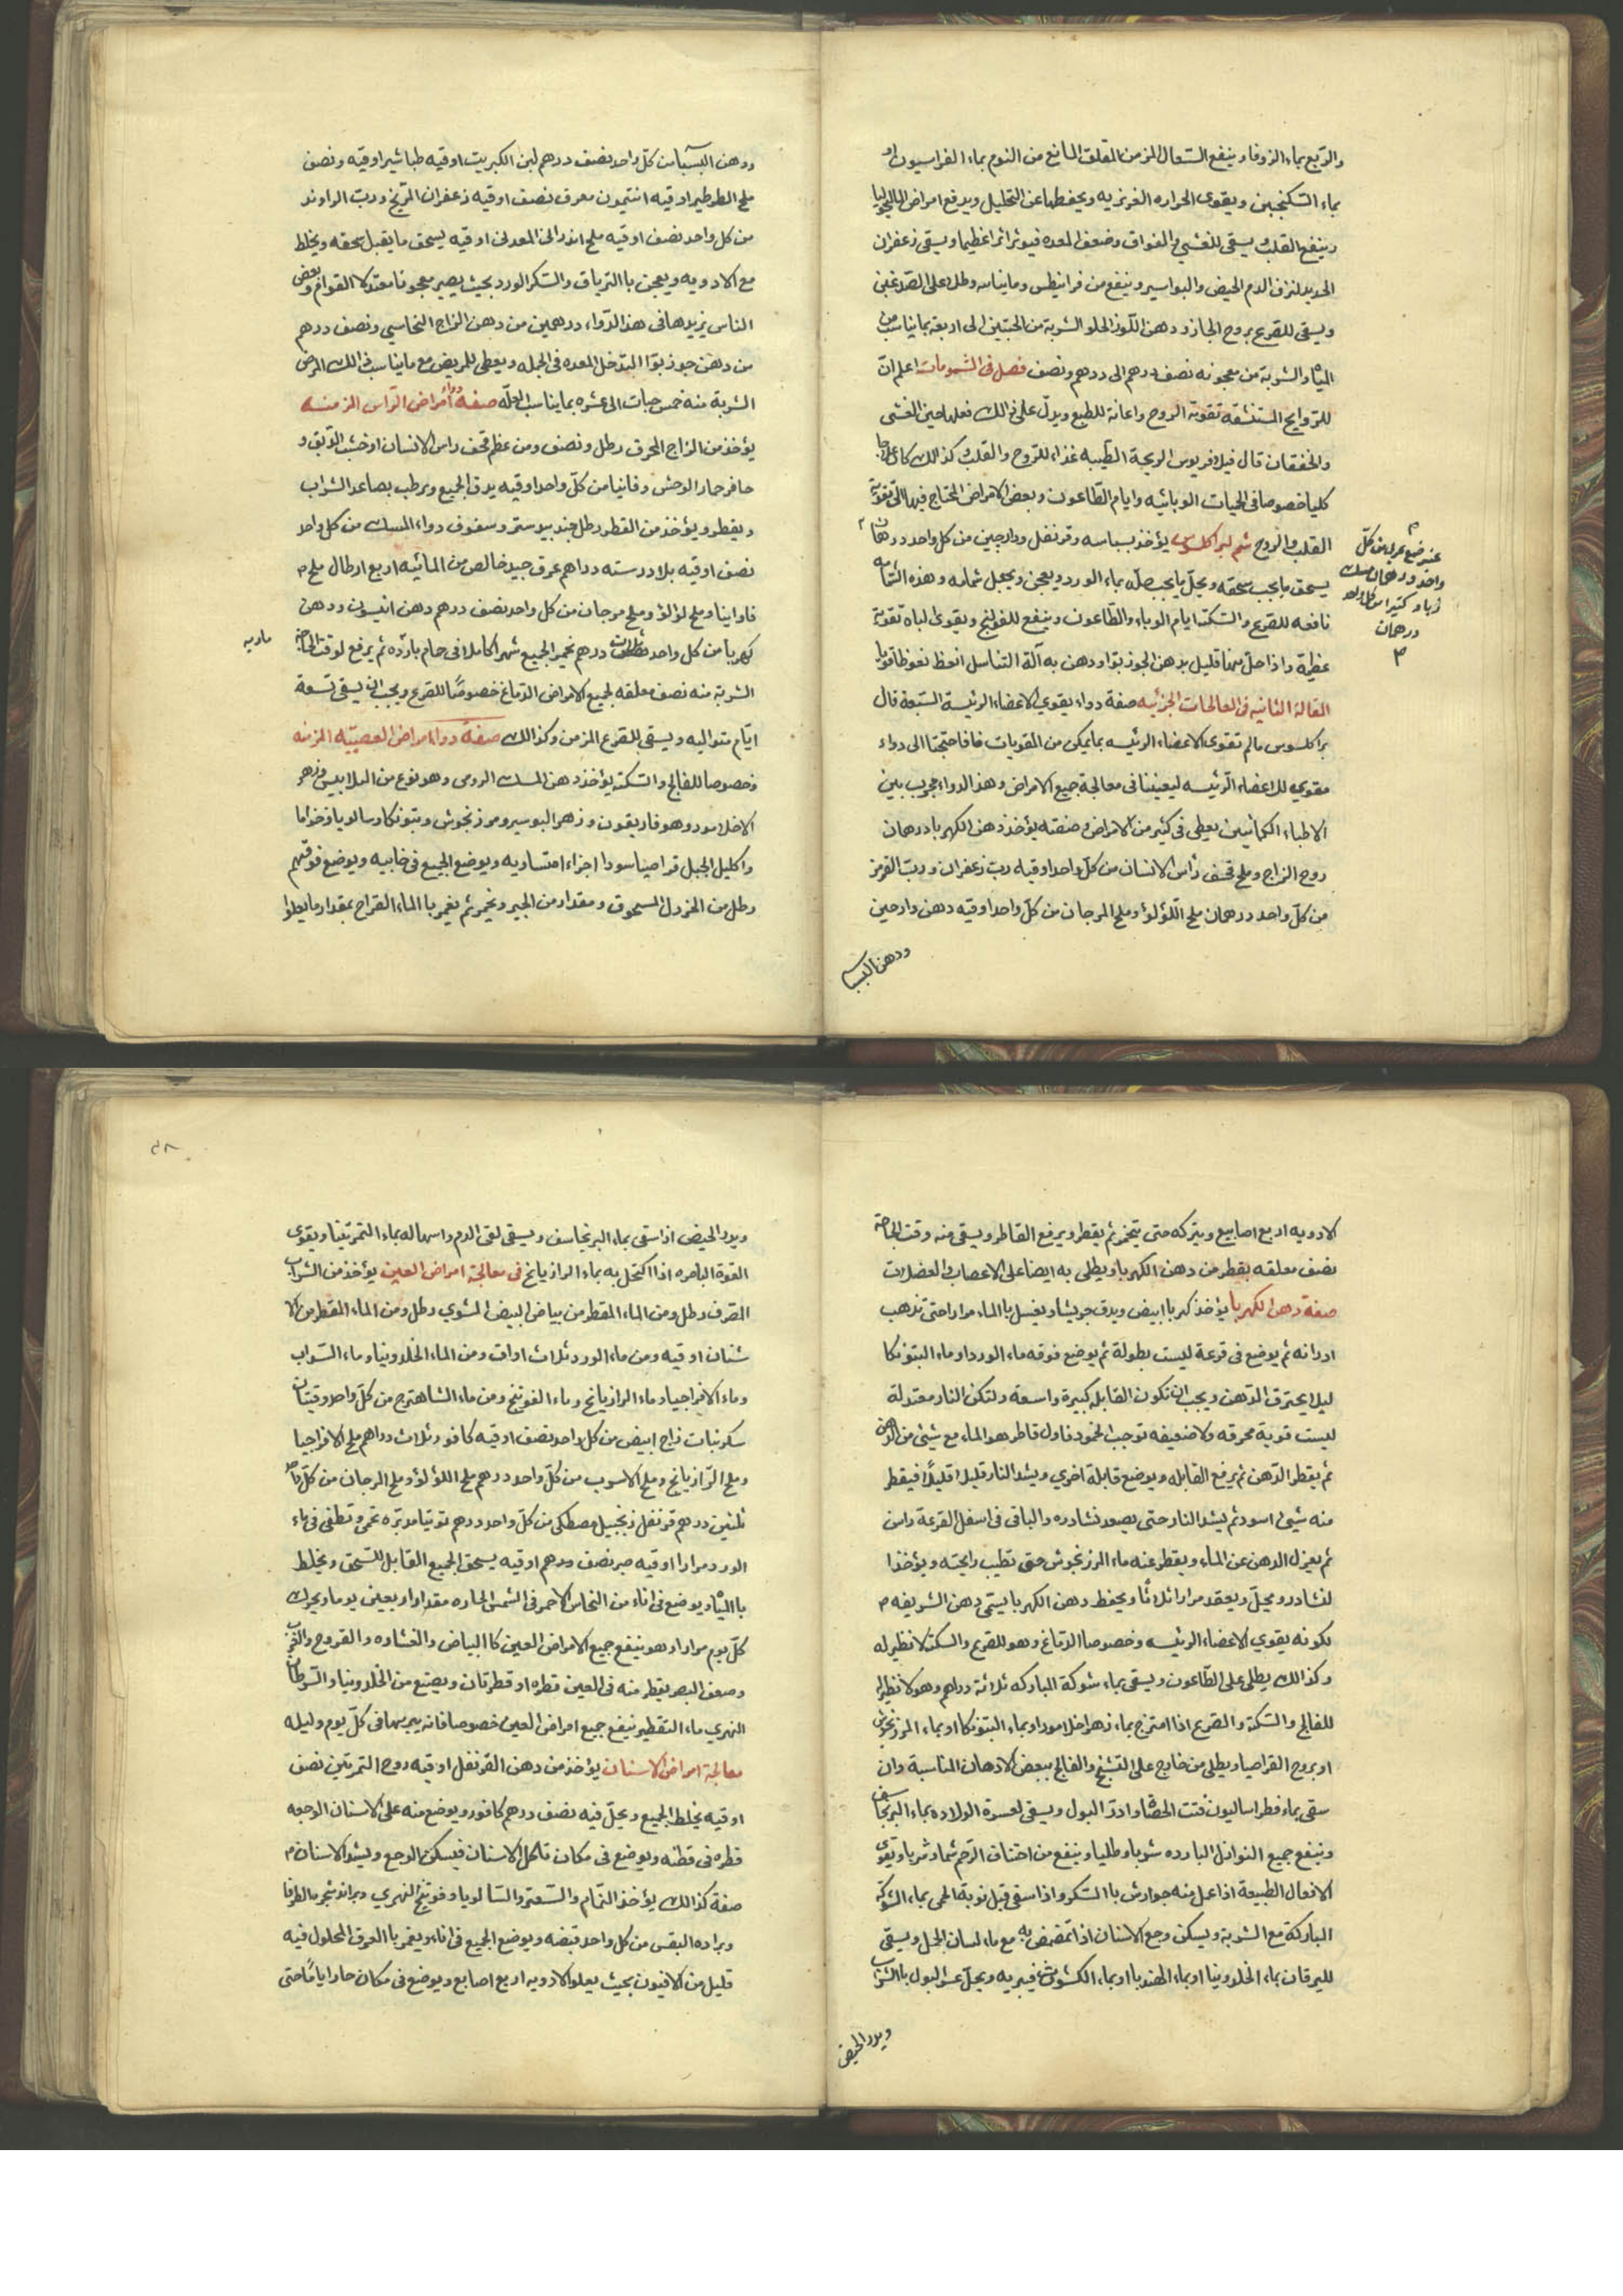 والربع بماء الزوفا وينفع السعال المزمن المقلق المانع من النوم بماء الفراسيون او
بماء السكنجبين ويقوى الحراره الغريزيه ويحفظها عن التحليل ويدفع امراض الماليخوليا
وينفع القلب ويسقى للغشي والفواق وضعف المعده فيؤثر اثرا عظيما ويسقى زعفران
الحديد لنزف الدم الحيض والبواسير وينفع من فرانيطس وماينا وطلا على الصدغين
ويسقى للصرع بروح الجاز ودهن اللوز الحلو الشربة من الحبتين الى اربعة بما يناسب من
المياه والشربة من معجونه نصف درهم الى درهم ونصف فصل فى الشمومات اعلم ان
للروايح المستنشقه تقوية الروح واعانة للطبع ويدل على ذالك فعلها حين الغشى
والخفقان قال فيلافريوس الريحة الطيبه غذاء للروح والقلب وكذالك كا علاجا
كليا خصوصا فى الحميات الوبائيه وايام الطاعون وبعض الامراض المحتاج فيها الى تقوية
القلب والروح شم لبراكلسوس يؤخذ بسباسه وقرنفل ودارچين من كل واحد درهمان
عنبر من كل
واحد درهمان مسك
زباد كثيرا من كل واحد
درهمان
يسحق ما يجب سحقه ويحل ما يجب حله بماء الورد ويعجن ويجعل شمامه وهذه الشمامه
نافعه للصرع والسكته ايام الوباء والطاعون وينفع للقولنج ويقوى الباه تقوية
عظيمة واذا حل منها قليل بدهن الجوز بوا ودهن به آلة التناسل انعظ نعوظا قويا
المقالة الثانيه فى المعالجات الجزئيه صفة دواء يقوي الاعضاء الرئيسة السبعة قال
براكلسوس مالم تقوى الاعضاء الرئيسه بما يمكن من المقويات فاذا احتجنا الى دواء
مقوي للاعضاء الرئيسه ليعيننا فى معالجة جميع الامراض وهذا الدواء مجرب بين
الاطباء الكيمائيين يعطى فى كثير من الامراض وصنعته يؤخذ دهن الكهربا درهمان
روح الزاج وملح قحف رأس الانسان من كل واحد اوقيه رب زعفران ورب القرمز
من كل واحد درهمان ملح اللؤلؤ وملح المرجان من كل واحد اوقيه دهن دارحين
ودهن البسباسه
ودهن البسباسه من كل واحد نصف درهم لبن الكبريت اوقيه طباشير اوقيه ونصف
ملح الطرطير اوقيه انتيمون معرق نصف اوقيه زعفران المريخ ورب الراوند
من كل واحد نصف اوقيه ملح اندرانى المعدنى اوقيه يسحق ما يقبل سحقه ويخلط
مع الادويه ويعجن باالترياق والسكر الورد بحيث يصير معجونا معتدلا القوام وبعض
الناس يزيد هافى هذا الدواء درهمين من دهن الزاج النحاسي ونصف درهم
من دهن جوز بوا التدخل المعده فى الجمله ويعطى للمريض مع ما يناسب ذالك المرض
الشربة منه خمس حبات الى عشره بما يناسب العله صفة دواء أمراض الرأس المزمنه
يؤخذ من الزاج المحرق رطل ونصف ومن عظم قحف راس الانسان اوخشب الدبق و
حافر حمار الوحش وفانيا من كل واحد اوقيه يدق الجميع ويرطب بصاعد الشراب
ويقطر ويؤخذ من القطر رطل جندبيدستر وسفوف دواء المسك من كل واحد
نصف اوقيه بلادر سته دراهم عرق جيد خالص من المائيه اربع ارطال ملح
فاوانيا وملح لؤلؤ وملح مرجان من كل واحد نصف درهم دهن انيسون ودهن
كهربا من كل واحد ثلاث درهم يخمر الجميع شهرا كاملا فى حمام ماريه ثم يرفع لوقت الحاجة
ماريه
الشربة منه نصف معلقه لجميع الامراض الدماغ خصوصًا للصرع ويجب ان يسقى تسعة
ايام متواليه ويسقى للصرع المزمن وكذالك صفة دواء امراض العصبيه المزمنه
وخصوصا للفالج والسكته يؤخذ دهن المسك الرومى وهو نوع من الملابيس وزهر
الاخلامور وهو فاريقون وزهر البوسير ومرزنجوش وبتونكا وسالويا وخزاما
واكليل الجبل قراصيا سودا اجزاء متساويه ويوضع الجميع فى خابيه ويوضع فوقهم
رطل من الخردل المسحوق ومقدار من الخمير ويخمر ثم يغمر باالماء القراح بمقدار ما يعلوا
الادويه اربع اصابيع ويتركه حتى يتخمر ثم يقطر ويرفع القاطر ويسقى منه وقت الحاجة
نصف معلقه بقطر من دهن الكهربا ويطلى به ايضا على الاعصاب والعضلات
صفة دهن الكهربا يؤخذ كهربا ابيض ويدق جريشا ويغسل باالماء مرارا حتى تذهب
ادرانه ثم يوضع فى قرعة ليست بطولة ثم يوضع فوقه ماء الورد او ماء البتونكا
ليلا يحترق الدهن ويجب ان تكون القابله كبيرة واسعة ولتكن النار معتدلة
ليست قوية محرقه ولا ضعيفه توجب الخمود فاول قاطر هو الماء مع شيئ من الدهن
ثم يقطر الدهن ثم يرفع القابله ويوضع قابلة اخرى ويشد النار قليلا قليلاً فيقطر
منه شيئ اسود ثم يشد النار حتى يصعد نشادره والباقى فى اسفل القرعة راس
ثم يعزل الدهن عن الماء ويقطر عنه ماء المرزنجوش حتى تطيب رايحته ويؤخذا
لنشادر ويحل ويعقد مرارا ثلاثا ويحفظ دهن الكهربا يسمى دهن الشريفه
لكونه يقوي الاعضاء الرئيسه وخصوصا الدماغ وهو للصرع والسكته لا نظير له
وكذالك يطلى على الطاعون ويسقى بماء شوكة المباركه ثلاثة دراهم وهو لا نظيرا
للفالج والسكتة والصرع اذا امتزج بماء زهر اخلامور او بماء البتونكا او بماء المرزنجوش
او بروح القراصيا ويطلى من خارج على التشنج والفالج ببعض الادهان المناسبة وان
سقى بماء فطراساليون فتت الحصا وادر البول ويسقى لعسرة الولاده بماء البرنجاسف
وينفع جميع النوازل البارده شوبا وطليا وينفع من اختناق الرحم شما وشربا ويقوى
الافعال الطبيعة اذا عمل منه جوارش باالسكر واذا سقى قبل نوبة الحمى بماء الشوكة
المباركة مع الشربة ويسكن وجع الاسنان اذا تمضمض به مع ماء لسان الحمل ويسقى
لليرقان بماء الخلدونيا او بماء الهندبا او بماء الكشوث فيبريه ويحل عسر البول باالشراب
ويدر الحيض
٣٨
ويدر الحيض اذا سقى بماء البرنجاسف ويسقى لقى الدم واسهاله بماء التمرتينا ويقوى
القوة الباصره اذا اكتحل به بماء الرازيانج فى معالجة امراض العين يؤخذ من الشراب
الصرف رطل ومن الماء المقطر من بياض البيض المشوي رطل ومن الماء المقطر من الا
شنان اوقيه ومن ماء الورد ثلاث اواق ومن الماء الخلدونيا وماء السداب
وماء الافراجيا وماء الرازيانج وماء الفوتنج ومن ماء الشاهترج من كل واحد وقيتان
سكر نبات زاج ابيض من كل واحد نصف اوقيه كافور ثلاث دراهم ملح الافراجيا
وملح الرازيانج وملح الاسرب من كل واحد درهم ملح اللؤلؤ وملح المرجان من كل واحد
ثلثين درهم قرنفل زنجبيل مصطكى من كل واحد درهم توتيا مدبره تحمى وتطفى فى ماء
الورد مرارا اوقيه صبر نصف درهم اوقيه يسحق الجميع القابل للسحق ويخلط
باالمياه ويوضع فى اناء من النحاس الاحمر فى الشمس الحاره مقدار اربعين يوما ويحرك
كل يوم مرارا وهو ينفع جميع الامراض العين كاالبياض والغشاوه والقروح والجرب
وضعف البصر يقطر منه فى العين قطره او قطرتان ويصنع من الخلدونيا والسرطان
النهري ماء التقطير ينفع جميع امراض العين خصوصا فانه يبريها فى كل يوم وليله
معالجة امراض الاسنان يؤخذ من دهن القرنفل اوقيه روح التمرتين نصف
اوقيه يخلط الجميع ويحل فيه نصف درهم كافور ويوضع منه على الاسنان الوجعه
قطره فى قطنه ويوضع فى مكان تاكل الاسنان فيسكن الوجع ويشد الاسنان
صفة كذالك يؤخذ النمام والسعتر والسالويا وفوتنج النهري وبرادة شجر الطرفا
وبراده البقس من كل واحد قبضه ويوضع الجميع فى اناء ويغمر باالعرق المحلول فيه
قليل من الافيون بحيث يعلو الادويه اربع اصابع ويوضع فى مكان حار ايامًا حتى